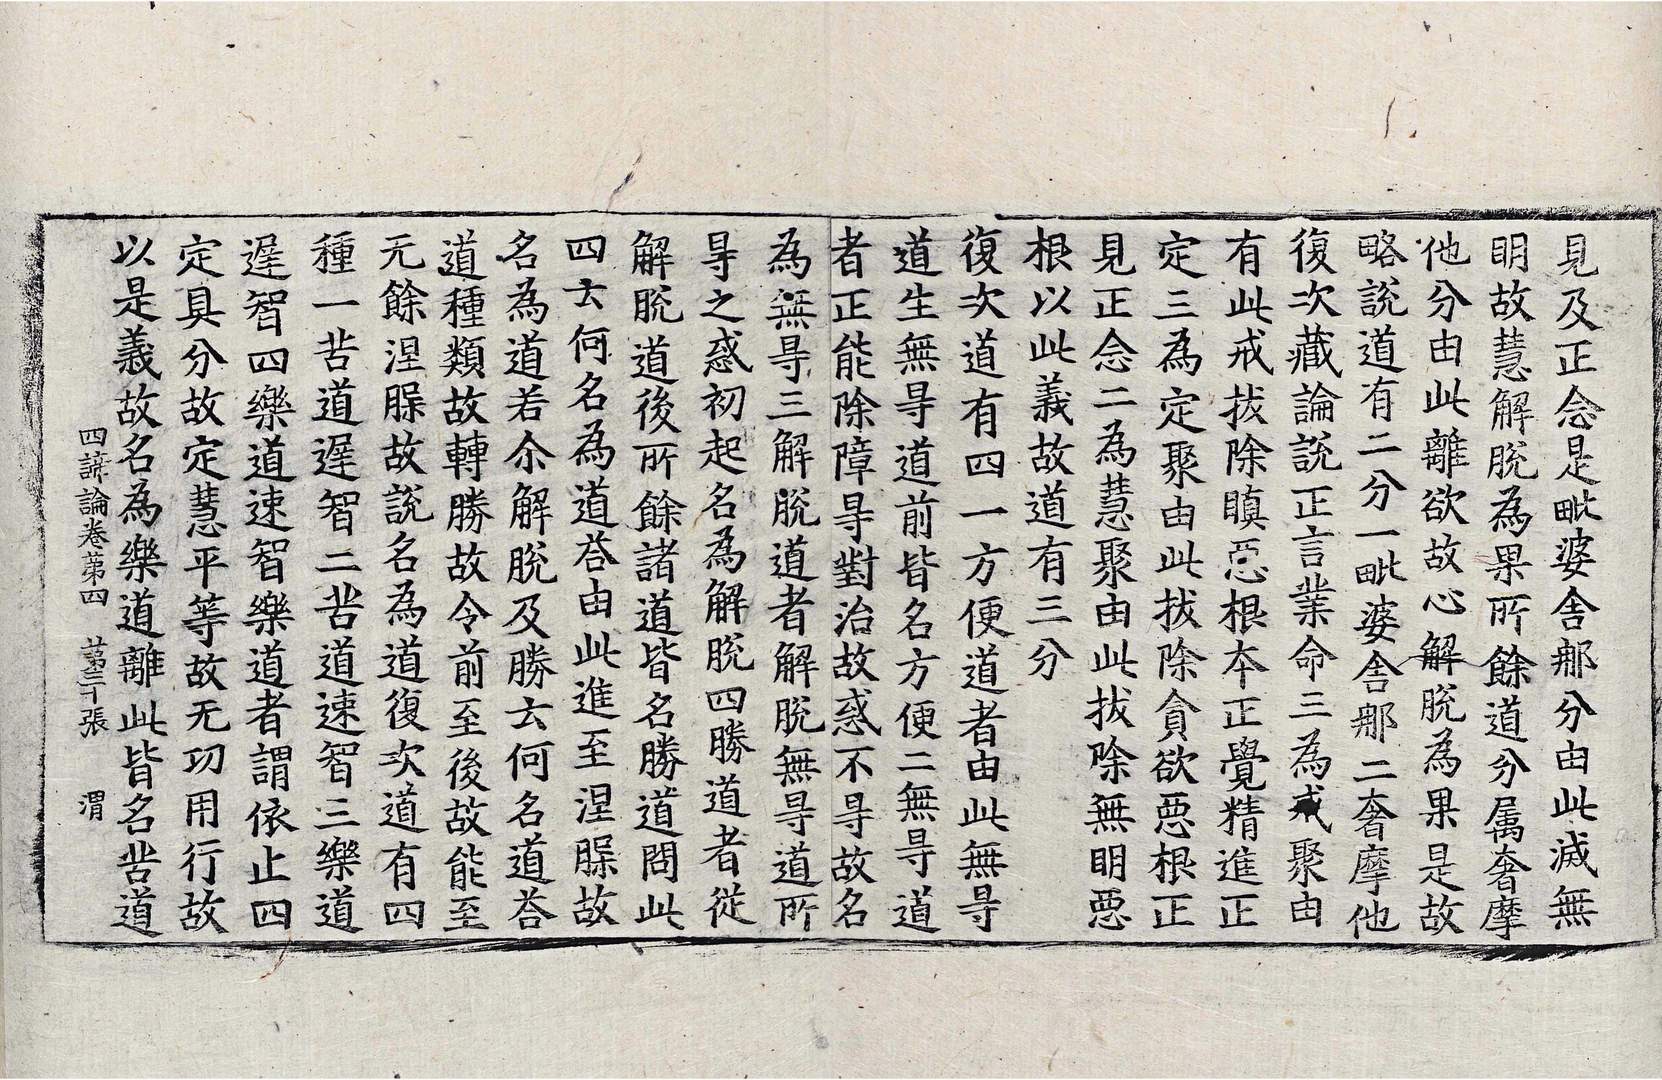 見及正念是毗婆舍那分由此滅無
明故慧解脫為果所餘道分属奢摩
他分由此離欲故心解脫為果是故
略說道有二分一毗婆舍那二奢摩他
復次藏論說正言業命三為戒聚由
有此戒拔除瞋惡根夲正覺精進正
定三為定聚由此拔除貪欲惡根正
見正念二為慧聚由此拔除無明惡
根以此義故道有三分
復次道有四一方便道者由此無㝵
道生無㝵道前皆名方便二無㝵道
者正能除障㝵對治故惑不㝵故名
為無㝵三解脫道者解脫無㝵道所
㝵之惑初起名為解脫四勝道者從
解脫道後所餘諸道皆名勝道問此
四云何名為道荅由此進至涅槃故
名為道若尒解脫及勝云何名道荅
道種類故轉勝故令前至後故能至
无餘涅槃故說名為道復次道有四
種一苦道遟智二苦道速智三樂道
遟智四樂道速智樂道者謂依止四
定具分故定慧平等故无功用行故
以是義故名為樂道離此皆名苦道
四諦論卷苐四 苐三十張 渭